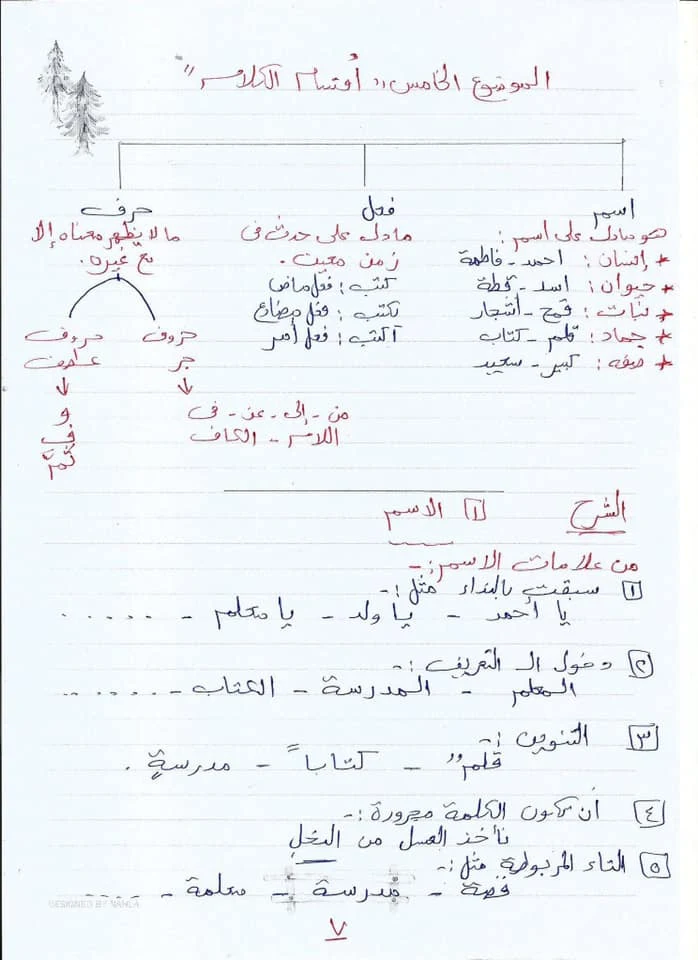 الموضوع الخامس "أقسام الكلام"
اسم
هو مادل على اسم:
* إنسان: احمد - فاطمة
* حيوان: اسد - قطة
* نبات: قمح - أشجار
* جماد: قلم - كتاب
* صفه: كبير - سعيد
فعل
مادل على حدث فى
زمن معين.
كتب: فعل ماض
يكتب: فعل مضارع
اكتب: فعل أمر
حرف
مالا يظهر معناه إلا
مع غيره.
حروف
جر
↓
من - إلى - عن - فى
اللام - الكاف
حروف
عطف
↓
و
ف
ثمَّ
الشرح
١ الاسم
من علامات الاسم :-
١ سبقت بالنداء مثل :-
يا أحمد - يا ولد - يا معلم - ......
٢ دخول الـ التعريف :-
المعلم - المدرسة - الكتاب - ......
٣ التنوين :-
قلمٌ - كتاباً - مدرسةٍ .
٤ أن تكون الكلمة مجرورة :-
نأخذ العسل من النحلِ
٥ التاء المربوطة مثل :-
قصة - مدرسة - معلمة - .....
DESIGNED BY NAHLA
٧